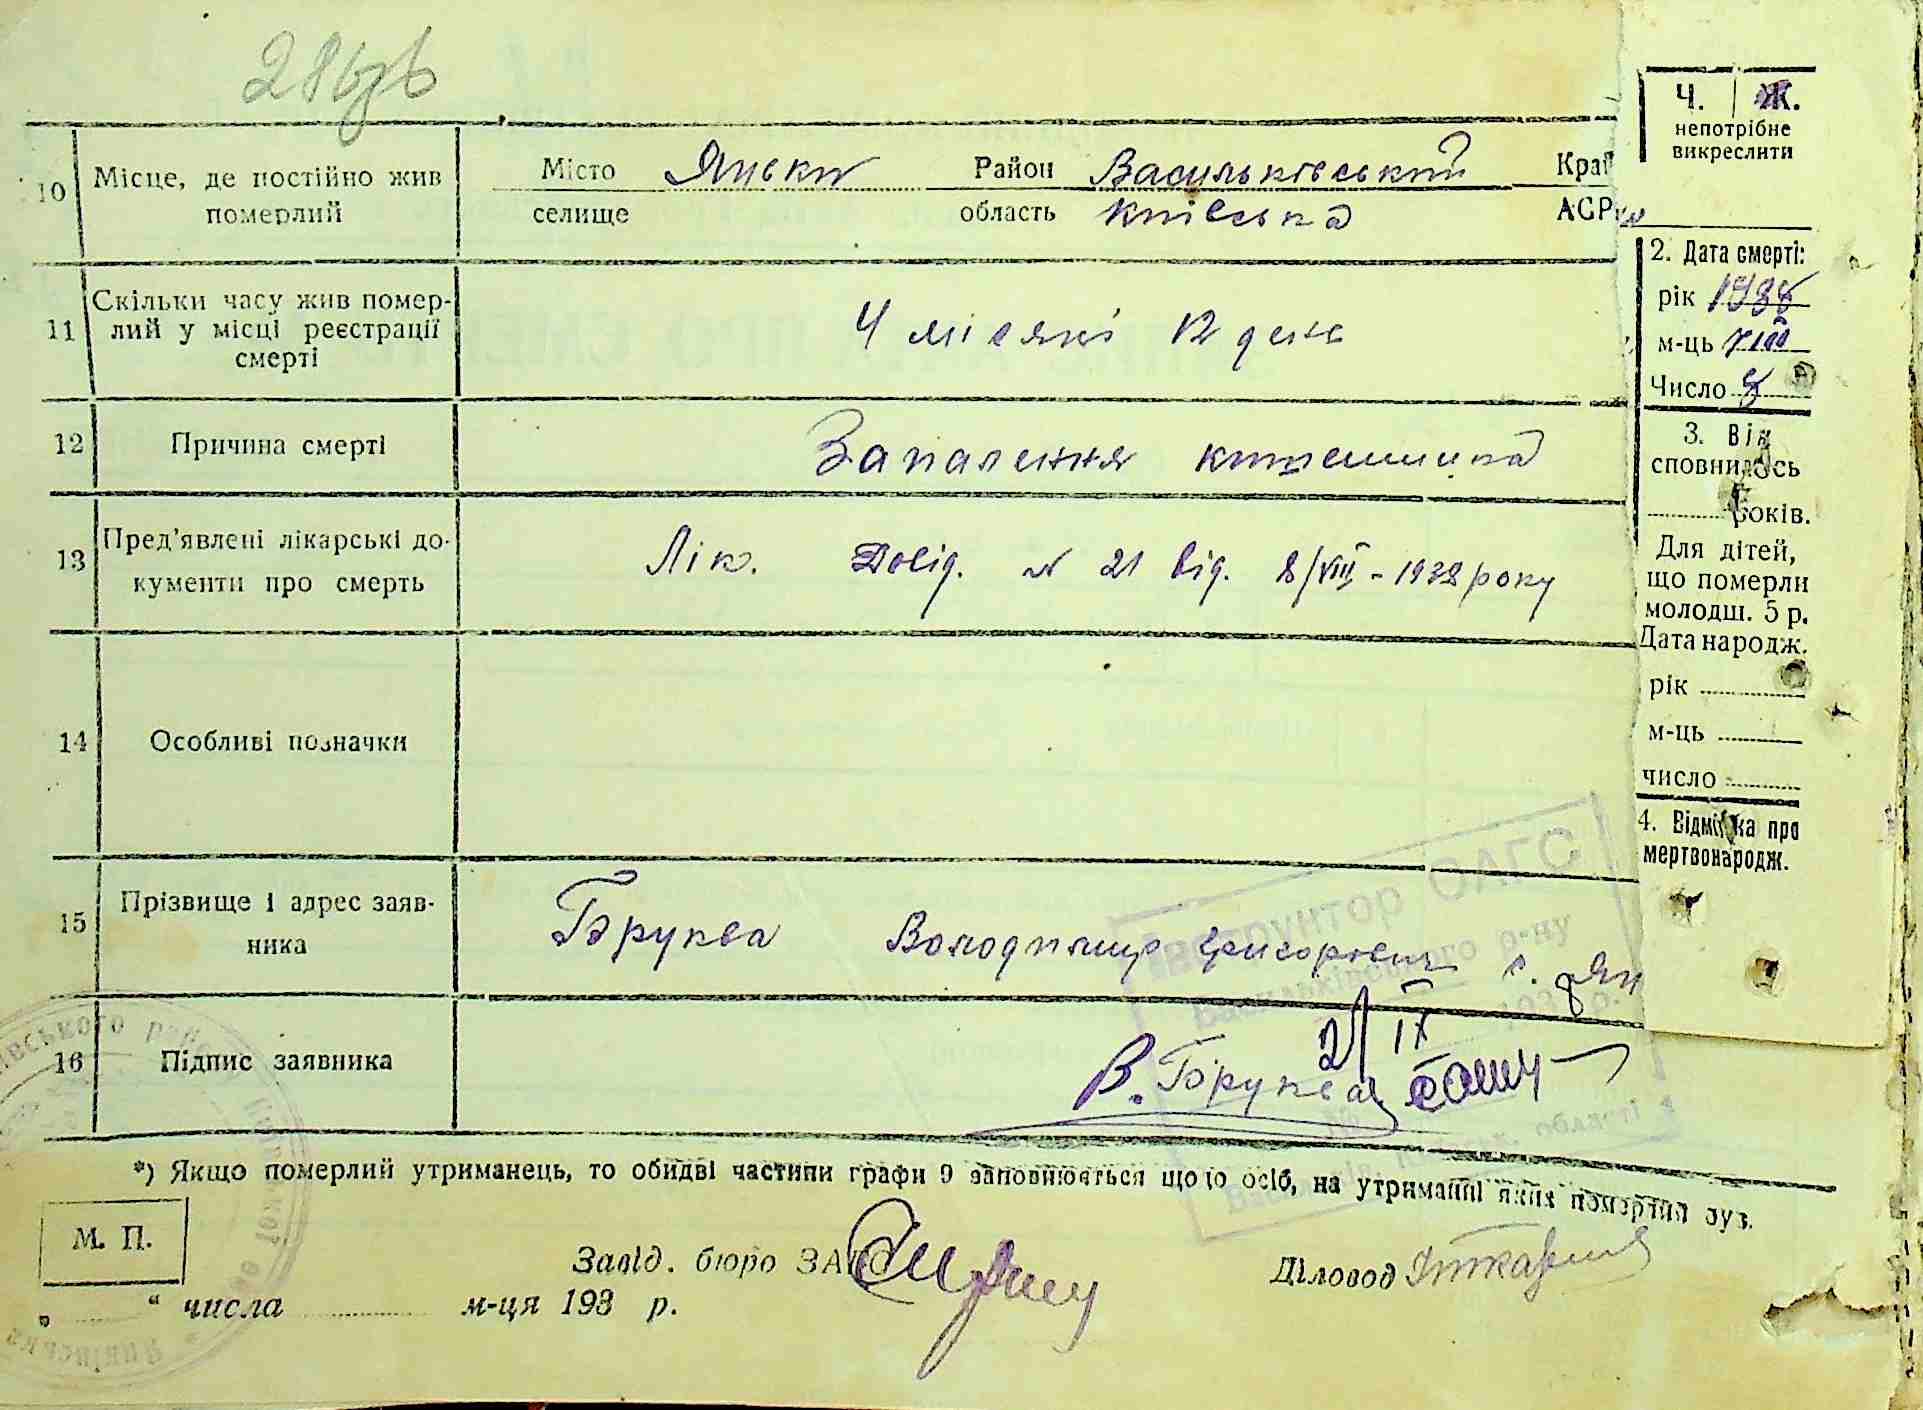 10 Місце, де постійно жив померлий
Місто Яньки Район Васильківський Край
селище область Київська АСР
11 Скільки часу жив помер-
лий у місці реєстрації
смерті
4 місяці 12 день
12 Причина смерті
Запалення
13 Пред'явлені лікарські до-
кументи про смерть
Лік. Довід. № 21 від. 8/VIII - 1938 року
14 Особливі позначки
15 Прізвище і адрес заяв-
ника
Бруква Володимир Григорович с. Ян
16 Підпис заявника
2/IX
В. Бруква
*) Якщо померлий утриманець, то обидві частини графи 9 заповнюється щодо осіб, на утриманні яких померлий був.
М. П.
Завід. бюро ЗАГС
Діловод
„ “ числа м-ця 193 р.
Ч. Ж.
непотрібне
викреслити
2. Дата смерті:
рік 1938
м-ць VIII
Число 8
3. Вік
сповнилось
років.
Для дітей,
що померли
молодш. 5 р.
Дата народж.
рік
м-ць
число
4. Відмітка про
мертвонародж.
Інструктор ОАГС
Васильківського р-ну
області